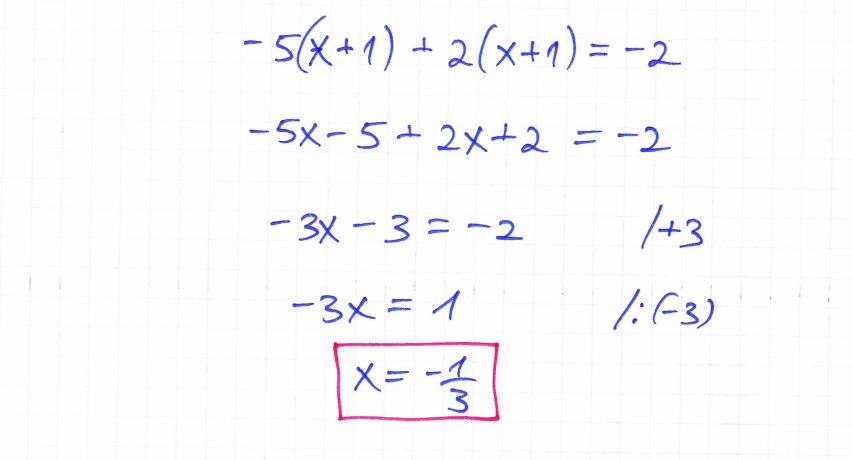 -5(x+1) + 2(x+1) = -2
-5x - 5 + 2x + 2 = -2
-3x - 3 = -2 /+3
-3x = 1 /:(-3)
x = -1/3